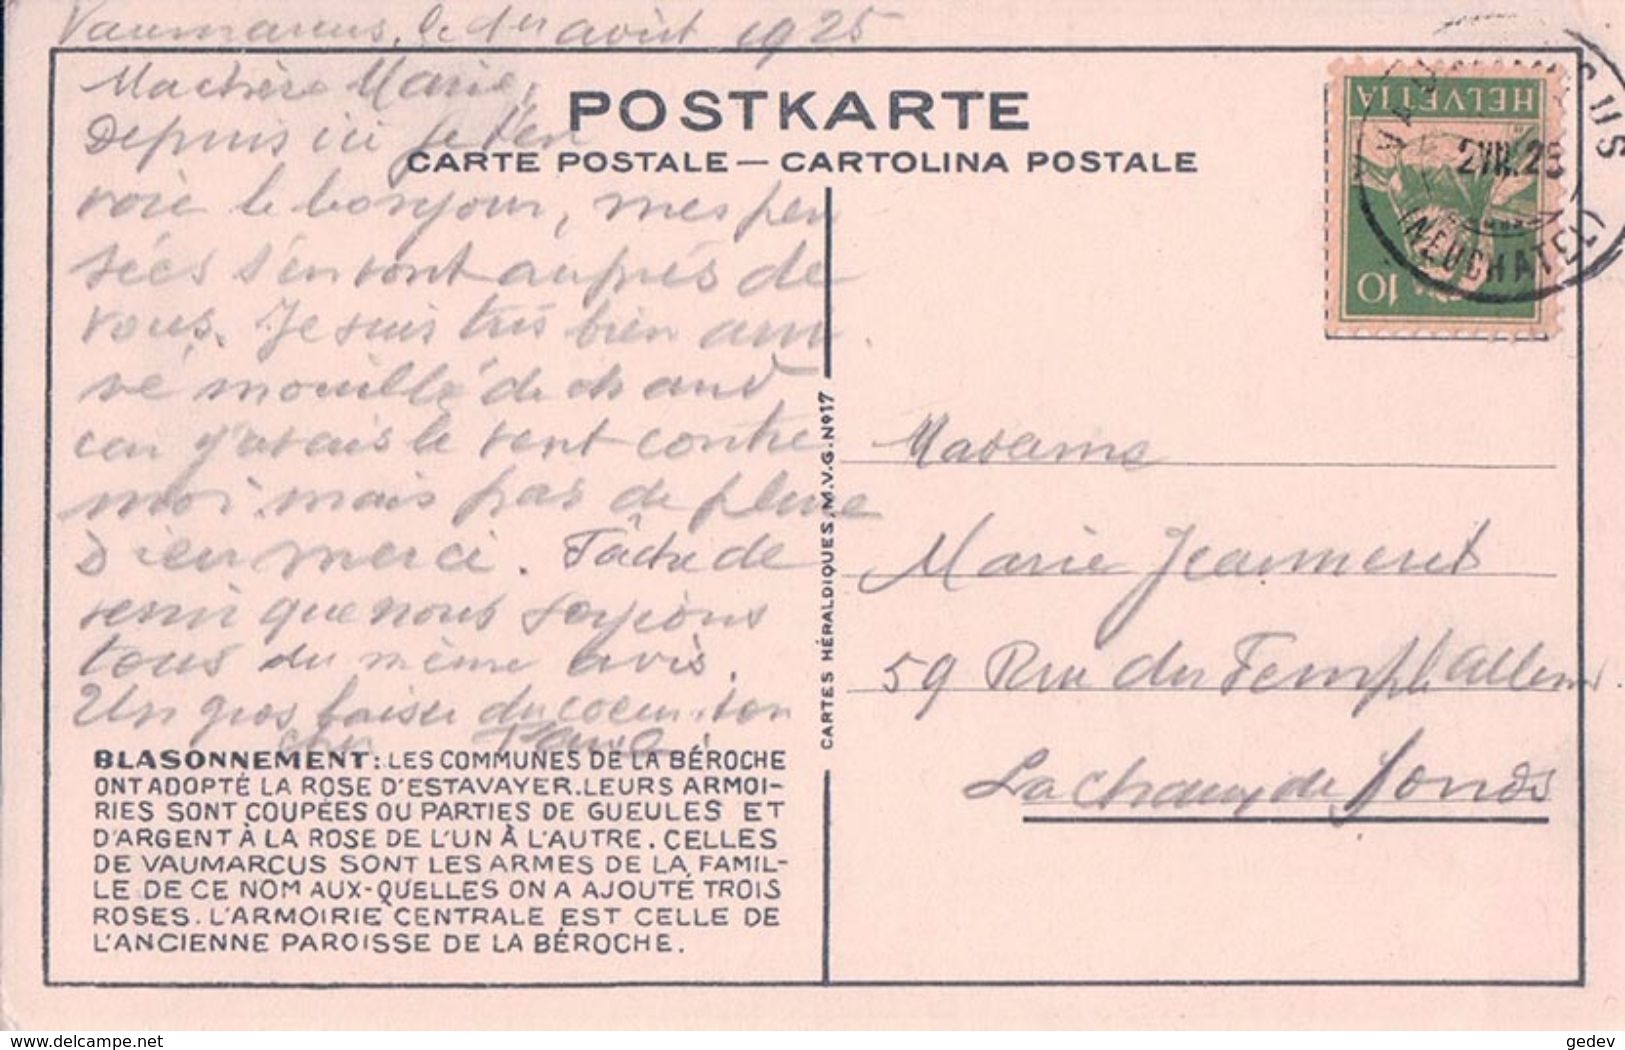 Vaumarcus, le 1er août 1925
Ma chère Marie,
Depuis ici je t'en
voie le bonjour, mes pen
sées s'en vont auprès de
vous. Je suis très bien arri
vé mouillé de chaud
car j'avais le vent contre
moi mais pas de pluie
Dieu merci. Tâche de
venir que nous soyions
tous du même avis.
Un gros baiser du coeur. ton
cher
POSTKARTE
CARTE POSTALE — CARTOLINA POSTALE
HELVETIA
10
2.VIII.25
(NEUCHATEL)
CARTES HÉRALDIQUES, M.V.G. No 17
Madame
Marie Jeanneret
59 Rue du Temple Allem
La Chaux de Fonds
BLASONNEMENT: LES COMMUNES DE LA BÉROCHE
ONT ADOPTÉ LA ROSE D'ESTAVAYER. LEURS ARMOI-
RIES SONT COUPÉES OU PARTIES DE GUEULES ET
D'ARGENT À LA ROSE DE L'UN À L'AUTRE. CELLES
DE VAUMARCUS SONT LES ARMES DE LA FAMIL-
LE DE CE NOM AUX-QUELLES ON A AJOUTÉ TROIS
ROSES. L'ARMOIRIE CENTRALE EST CELLE DE
L'ANCIENNE PAROISSE DE LA BÉROCHE.
© delcampe.net
gedev